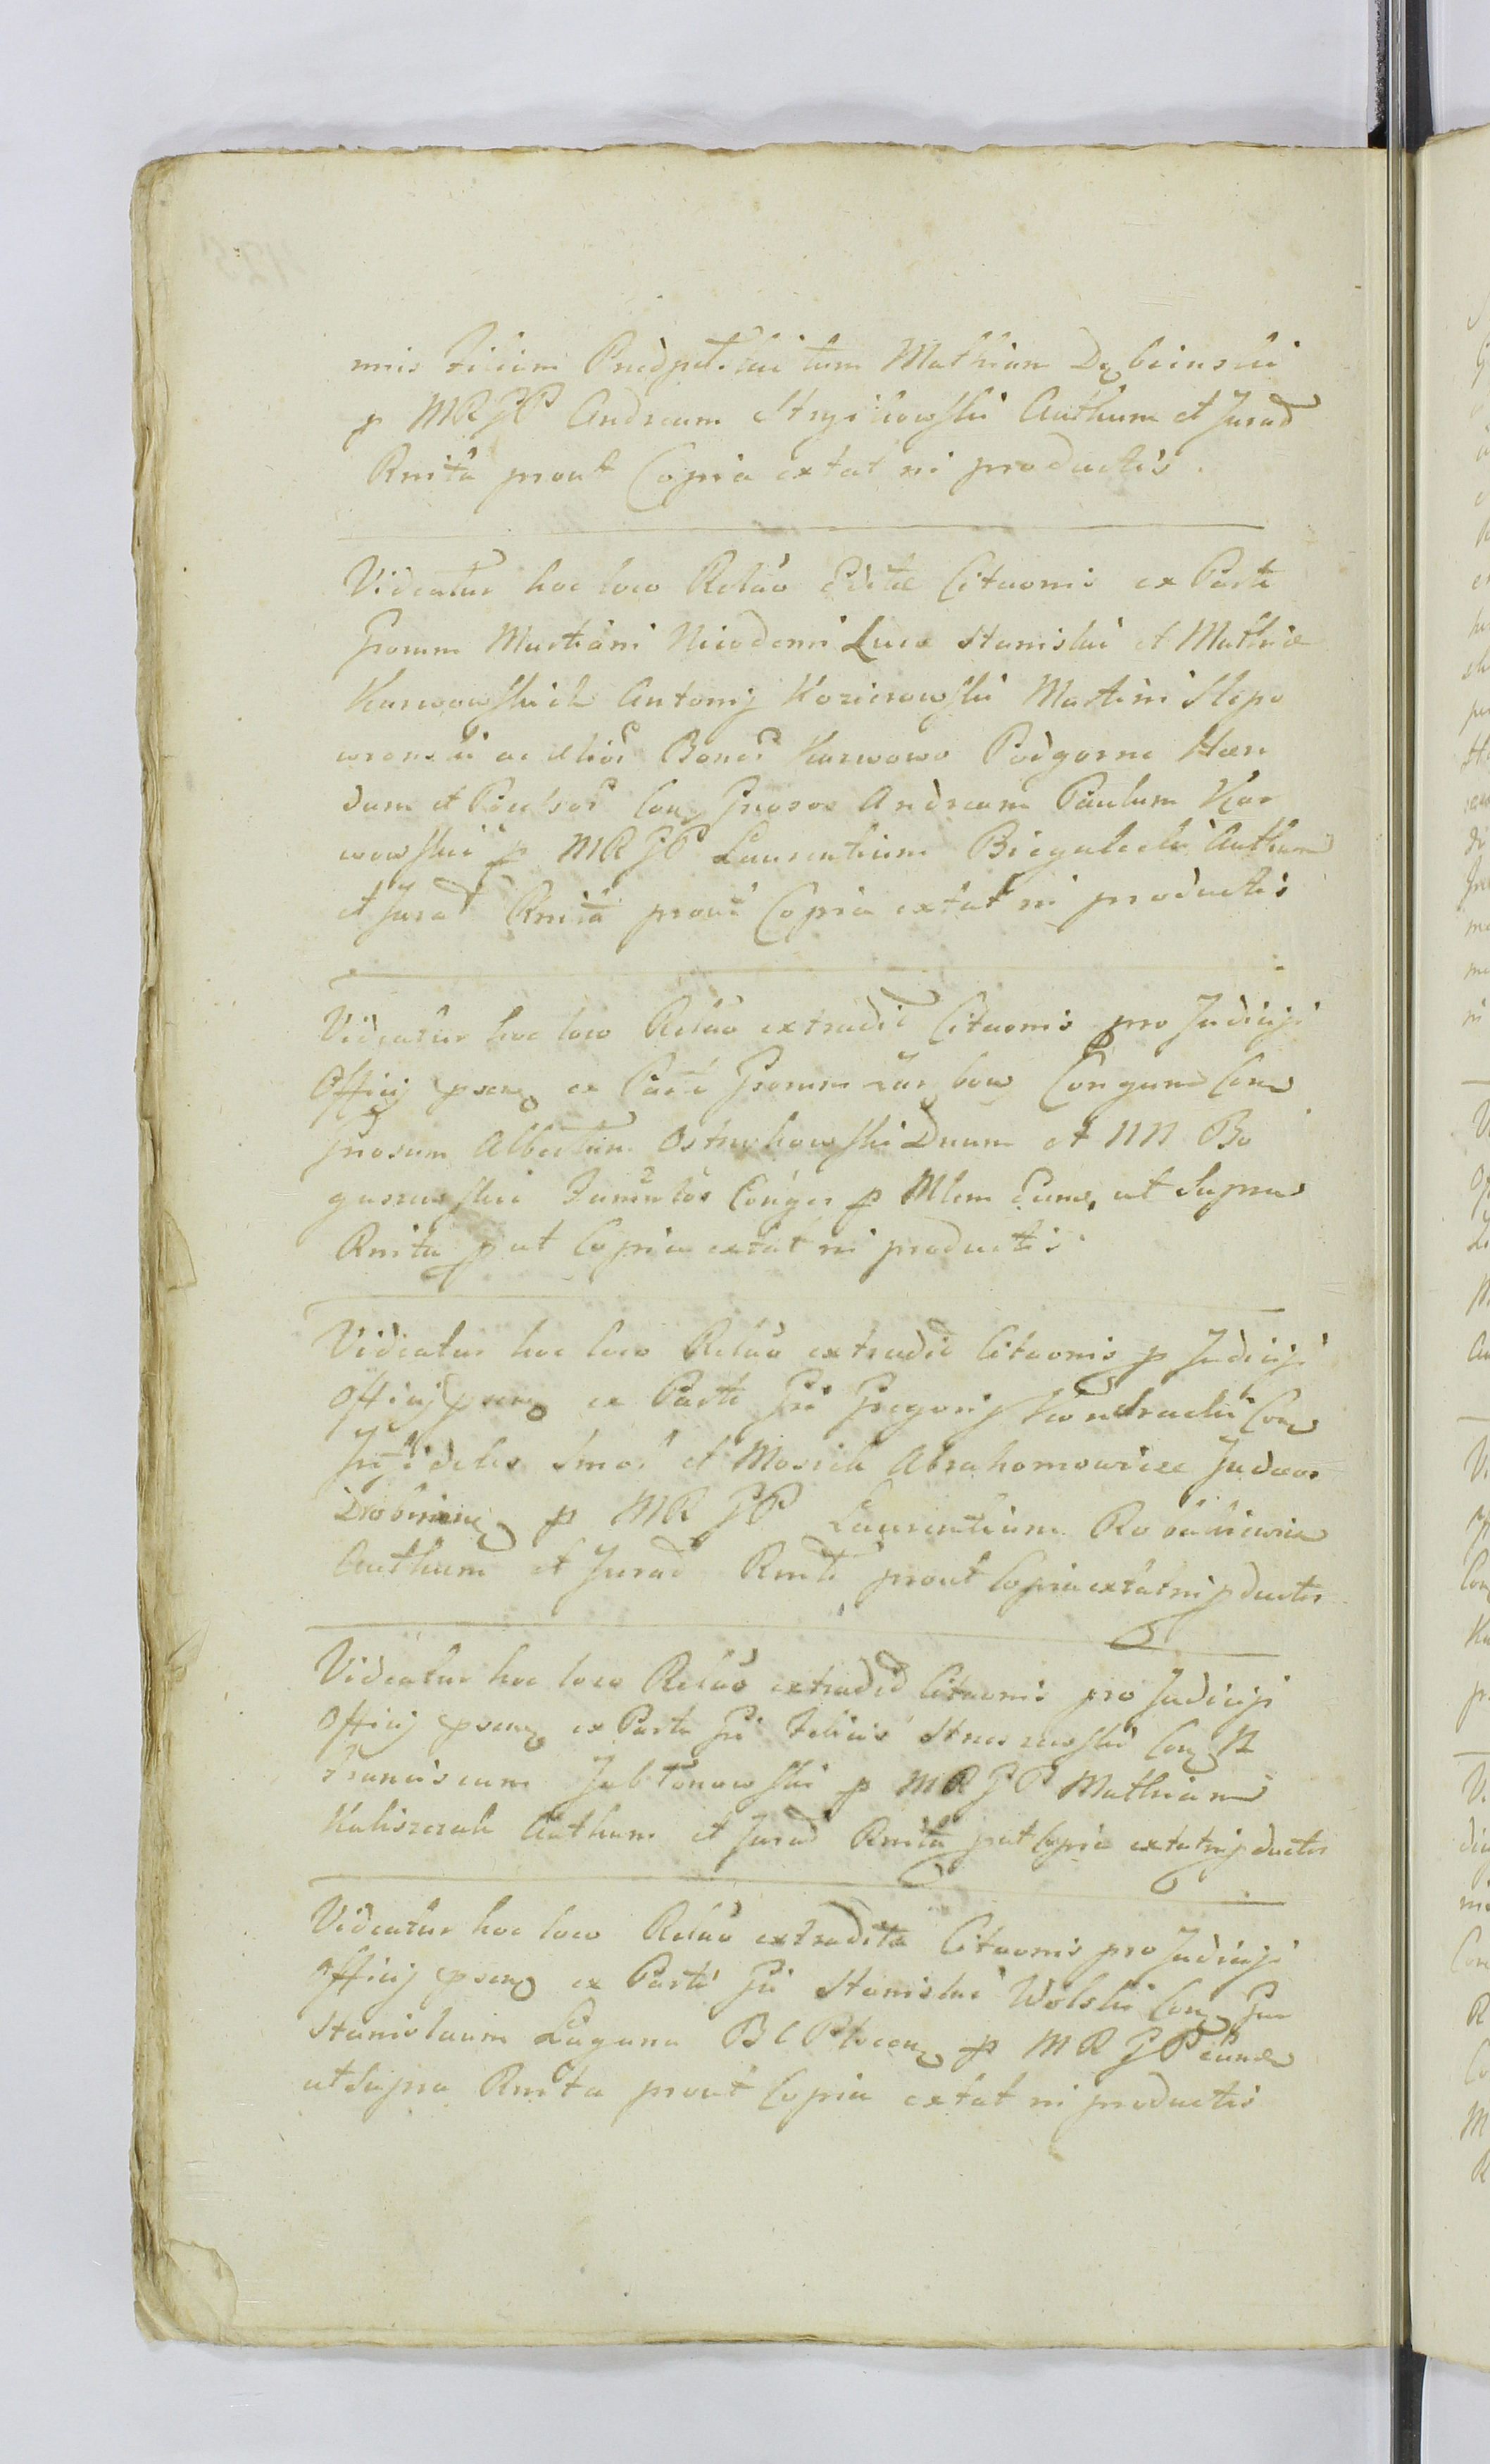 nnis Filium Prædpet. tum Mathiam Dębinski
p MRGP Andream Stryikowski Authum et Jurad
Rnita prout Copia extat in productis.
Videatur hoc loco Relao Edita Citaonis ex Parte
Grorum Martiani Nicodemi Lucæ Stanislai et Mathiæ
Karwowskich Antonij Kozierowski Martini Slepo
wronski ac alior Bonor Karwowo Podgorne Hæn
dum et Possor Con Grosos Andream Paulum Kar
wowskie p MRGP Laurentium Biegalski Authum
et Jurad Rnita prout Copia extat in productis
Videatur hoc loco Relao extradit Citaonis pro Judicijs
Officij psen ex Parte Grorum Con
Gnosum Albertum Ostrichowski Dnum et NN Bo
guszewskie Famulos Conges p Mlem Eund ut Supra
Rnita put Copia extat in productis
Videatur hoc loco Relao extradit Citaonis p Judicijs
Officij psen ex Parte Gsi Gregorij Kondracki Con
Infideles Smo et Mosiek Abrahomowicze Judæos
Drobinien p MRGP Laurentium
Authum et Jurad Rnita prout Copia extat in pductis
Videatur hoc loco Relao extradit Citaonis pro Judicijs
Officij psen ex Parte Gsi Felicis Con N
Franciscum Jabłonowski p MRGP Mathiam
Kaliszczak Authum et Jurad Rnita put Copia extat in pductis
Videatur hoc loco Relao extradita Citaonis pro Judicijs
Officij psen ex Parte Gsi Stanislai Wolski Con Gsu
Stanislaum Laguna BC Plocen p MRGP eunde
ut Supra Rnita prout Copia extat in productis